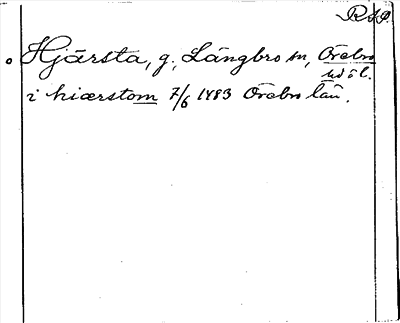 RAP.
Hjärsta, g., Långbro sn, Örebro
i hiærstom 7/6 1483 Örebro län.